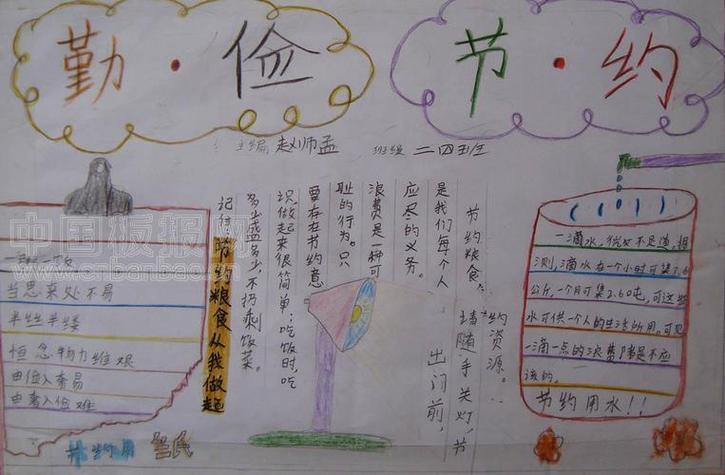 勤·俭 节·约
主编 赵师孟 班级 二四班
中国板报网
一粥一饭
当思来处不易
半丝半缕
恒念物力维艰
由俭入奢易
由奢入俭难
节约粮食,
是我们每个人
应尽的义务。
浪费是一种可
耻的行为。只
要存在节约意
识,做起来很简单:吃饭时,吃
多少盛多少,不扔剩饭菜。
记住:节约粮食从我做起
出门前,
请随手关灯,节
约资源。
一滴水,微不足道,
测,滴水在一个小时可集3.6
公斤,一个月可集2.60吨,可这些
水可供一个人的生活所用。可见
一滴一点的浪费都是不应
该的。
节约用水!!
节约用
纸